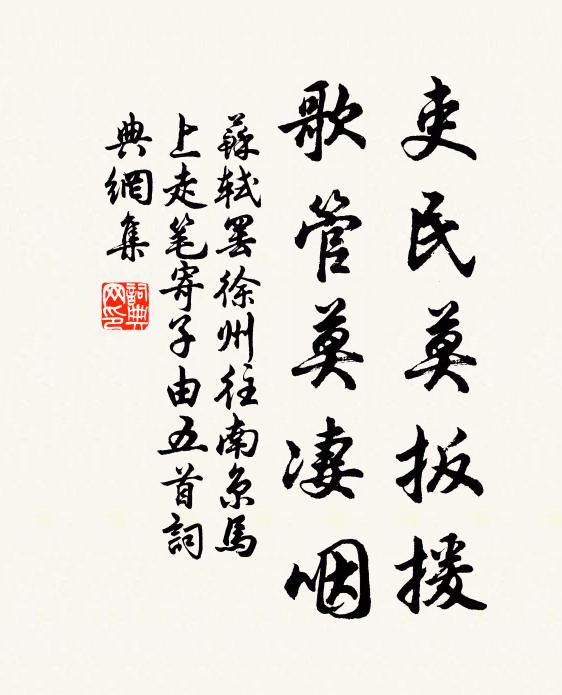 吏民莫扳援
歌管莫凄咽
蘇軾罢徐州往南京馬
上走笔寄子由五首詞
典網集
詞典网印